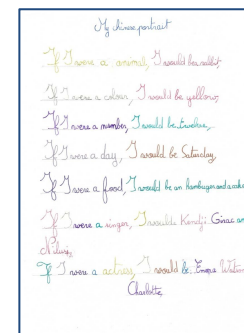 My chinese portrait
If I were a animal, I would be rabbit
If I were a colour, I would be yellow,
If I were a number, I would be twelve,
If I were a day, I would be Saturday,
If I were a food, I would be an hamburger and a
If I were a singer, I woulde Kendji Girac an
If I were a actress, I would be Emma Watson
Charlotte,